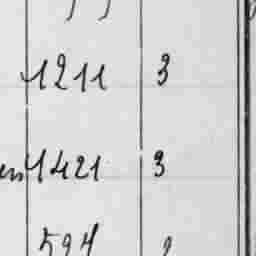 1211 3
1421 3
594